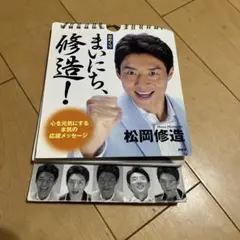 まいにち、
修造!
松岡修造
心を元気にする
本気の
応援メッセージ